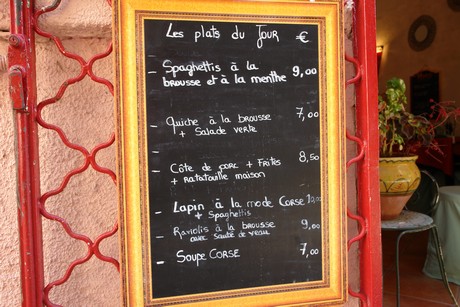 Les plats du Jour €
- Spaghettis à la
brousse et à la menthe 9,00
- Quiche à la brousse 7,00
+ Salade verte
-
- Côte de porc + Frites 8,50
+ Ratatouille maison
- Lapin à la mode CORSE
+ Spaghettis
- Raviolis à la brousse 9,00
avec sauté de veau
- Soupe CORSE 7,00